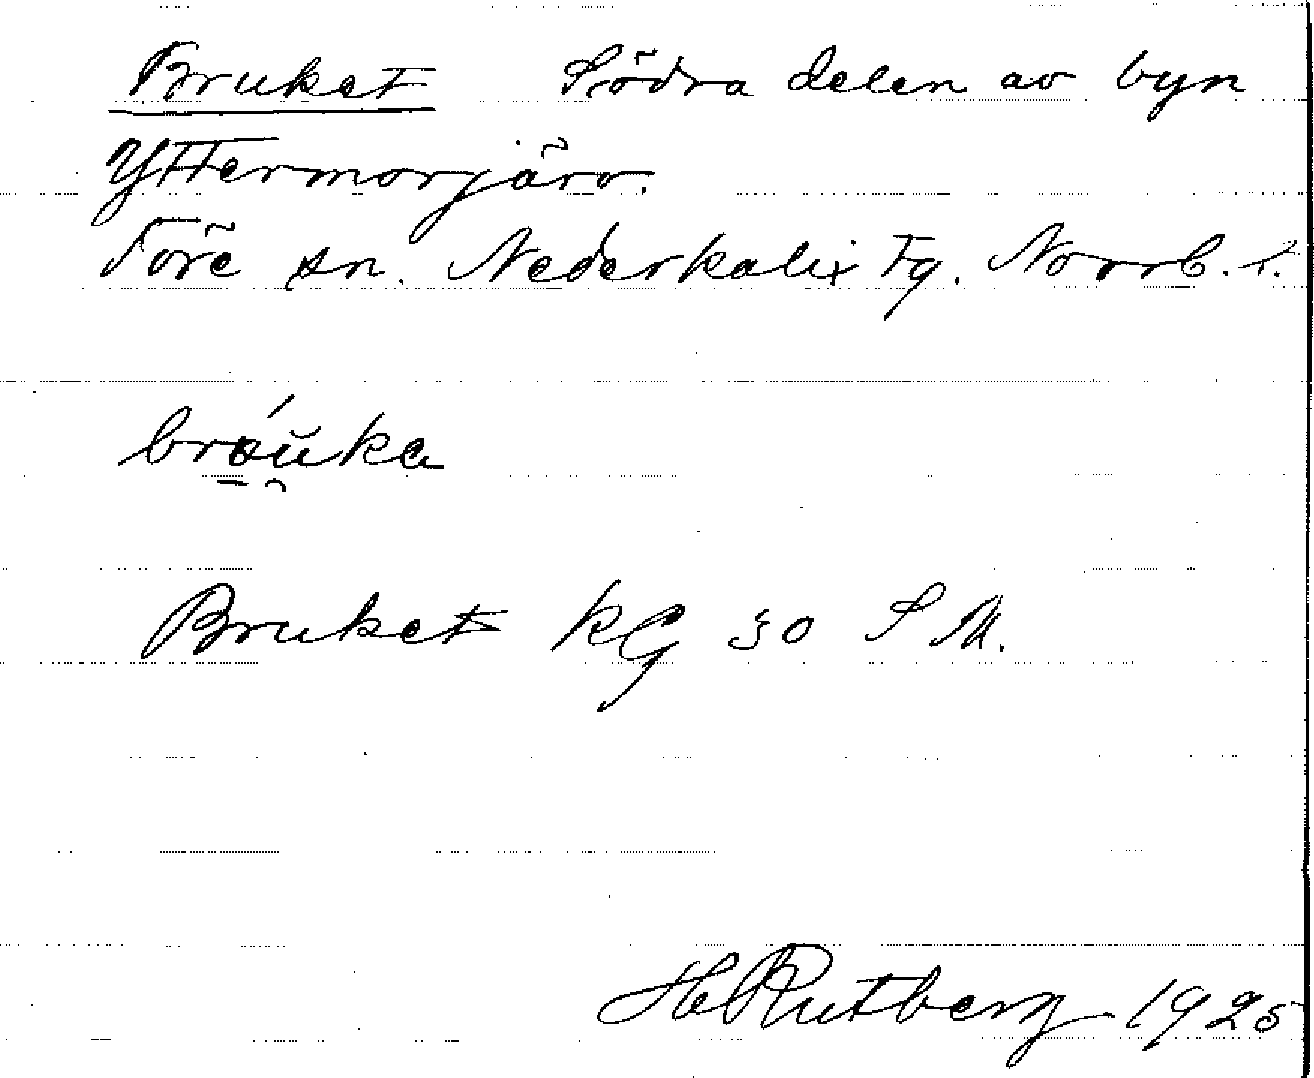 Bruket Södra delen av byn
Yttermorjärv.
Töre sn. Nederkalix tg. Norrb. l.
bróu̯ka
Bruket KG 30 S M.
H Rutberg 1925